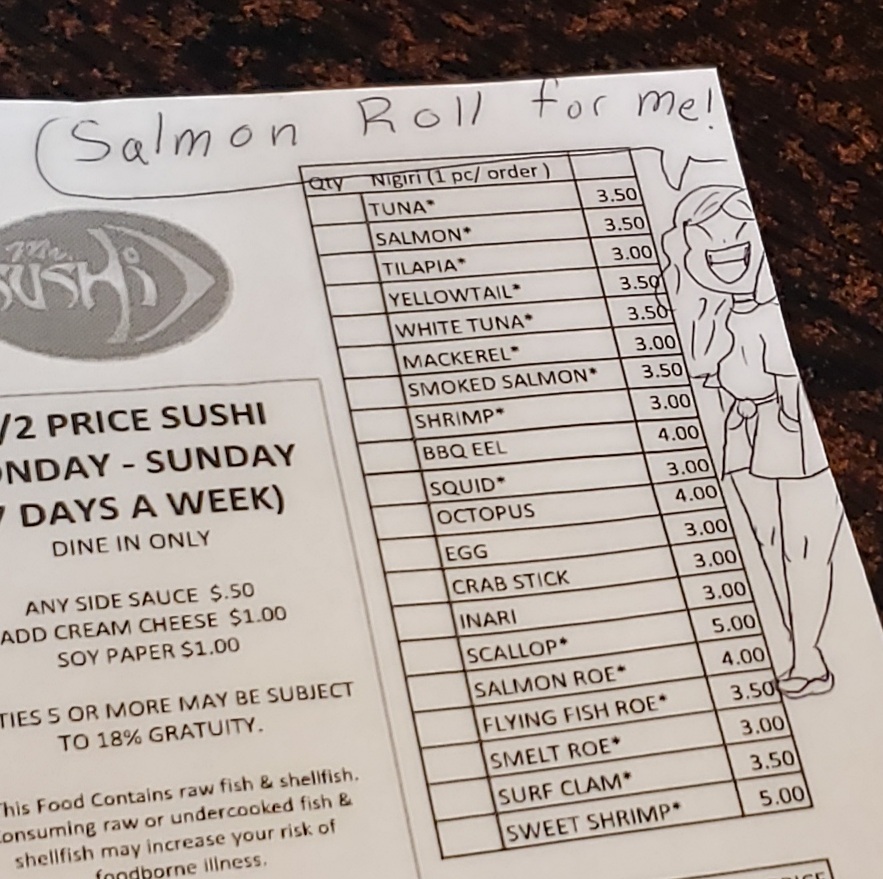 Salmon Roll for me!
Qty Nigiri (1 pc/ order )
TUNA* 3.50
SALMON* 3.50
TILAPIA* 3.00
YELLOWTAIL* 3.50
WHITE TUNA* 3.50
MACKEREL* 3.00
SMOKED SALMON* 3.50
SHRIMP* 3.00
BBQ EEL 4.00
SQUID* 3.00
OCTOPUS 4.00
EGG 3.00
CRAB STICK 3.00
INARI 3.00
SCALLOP* 5.00
SALMON ROE* 4.00
FLYING FISH ROE* 3.50
SMELT ROE* 3.00
SURF CLAM* 3.50
SWEET SHRIMP* 5.00
Mr.
SUSHi
/2 PRICE SUSHI
NDAY - SUNDAY
7 DAYS A WEEK)
DINE IN ONLY
ANY SIDE SAUCE $.50
ADD CREAM CHEESE $1.00
SOY PAPER $1.00
TIES 5 OR MORE MAY BE SUBJECT
TO 18% GRATUITY.
This Food Contains raw fish & shellfish.
onsuming raw or undercooked fish &
shellfish may increase your risk of
foodborne illness.